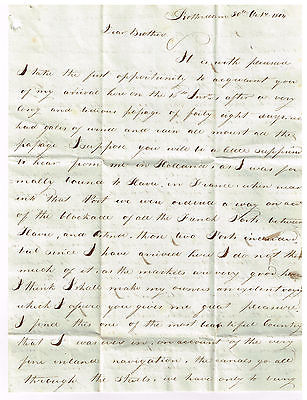 Rotterdam 30th Oct
Dear Brother,
It is with pleasure
I take the first opportunity to acquaint you
of my arrival here on the Inst. after a very
long and tedious passage of forty eight days we
had gales of wind and rain all most all the
passage. I suppose you will be a little surprised
to hear from me in Holland as I was for
mally bound to Havre, in France when near
into that Port we were ordered a way on acc
of the blockade of all the French Ports between
Havre, and Ostend those two Ports included
but since I have arrived here I do not think
much of it as the markets are very good here
I think I shall make my owners an excelent voyage
which I assure you gives me great pleasure,
I find this one of the most beautiful Country
that I was ever in, on account of the very
fine inland navigation, the canals go all
through the streets, we have only to bring